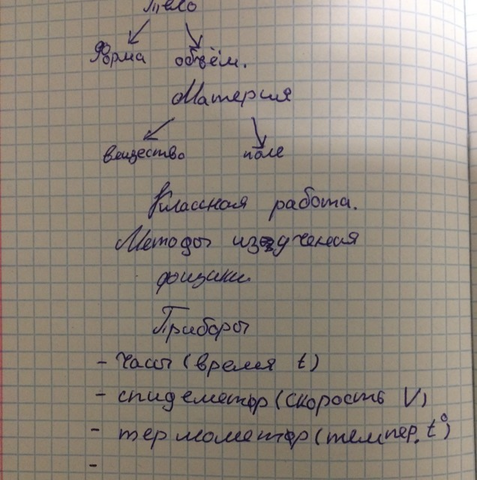 Тело
Форма объём.
Материя
вещество поле
Классная работа.
Методы изучения
физики
Приборы
- Часы (время t)
- спидеметр (скорость V)
- термометр (темпер. t°)
-